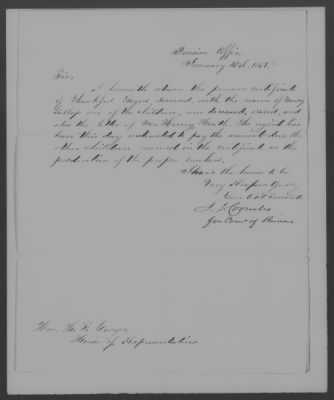 Pension Office
January 13th, 1858
Sir:
I herewith return the pension certificate
of Thankful, deceased, with the name of
one of the children, now deceased, erased, and
also the letter of Mrs Heath. The agent has
been this day instructed to pay the amount due the
other children named in the certificate on the
production of the proper vouchers.
I have the honor to be
Very Respectfully
Your Obt Servant
for Comr of Pensions
Hon.
House of Representatives